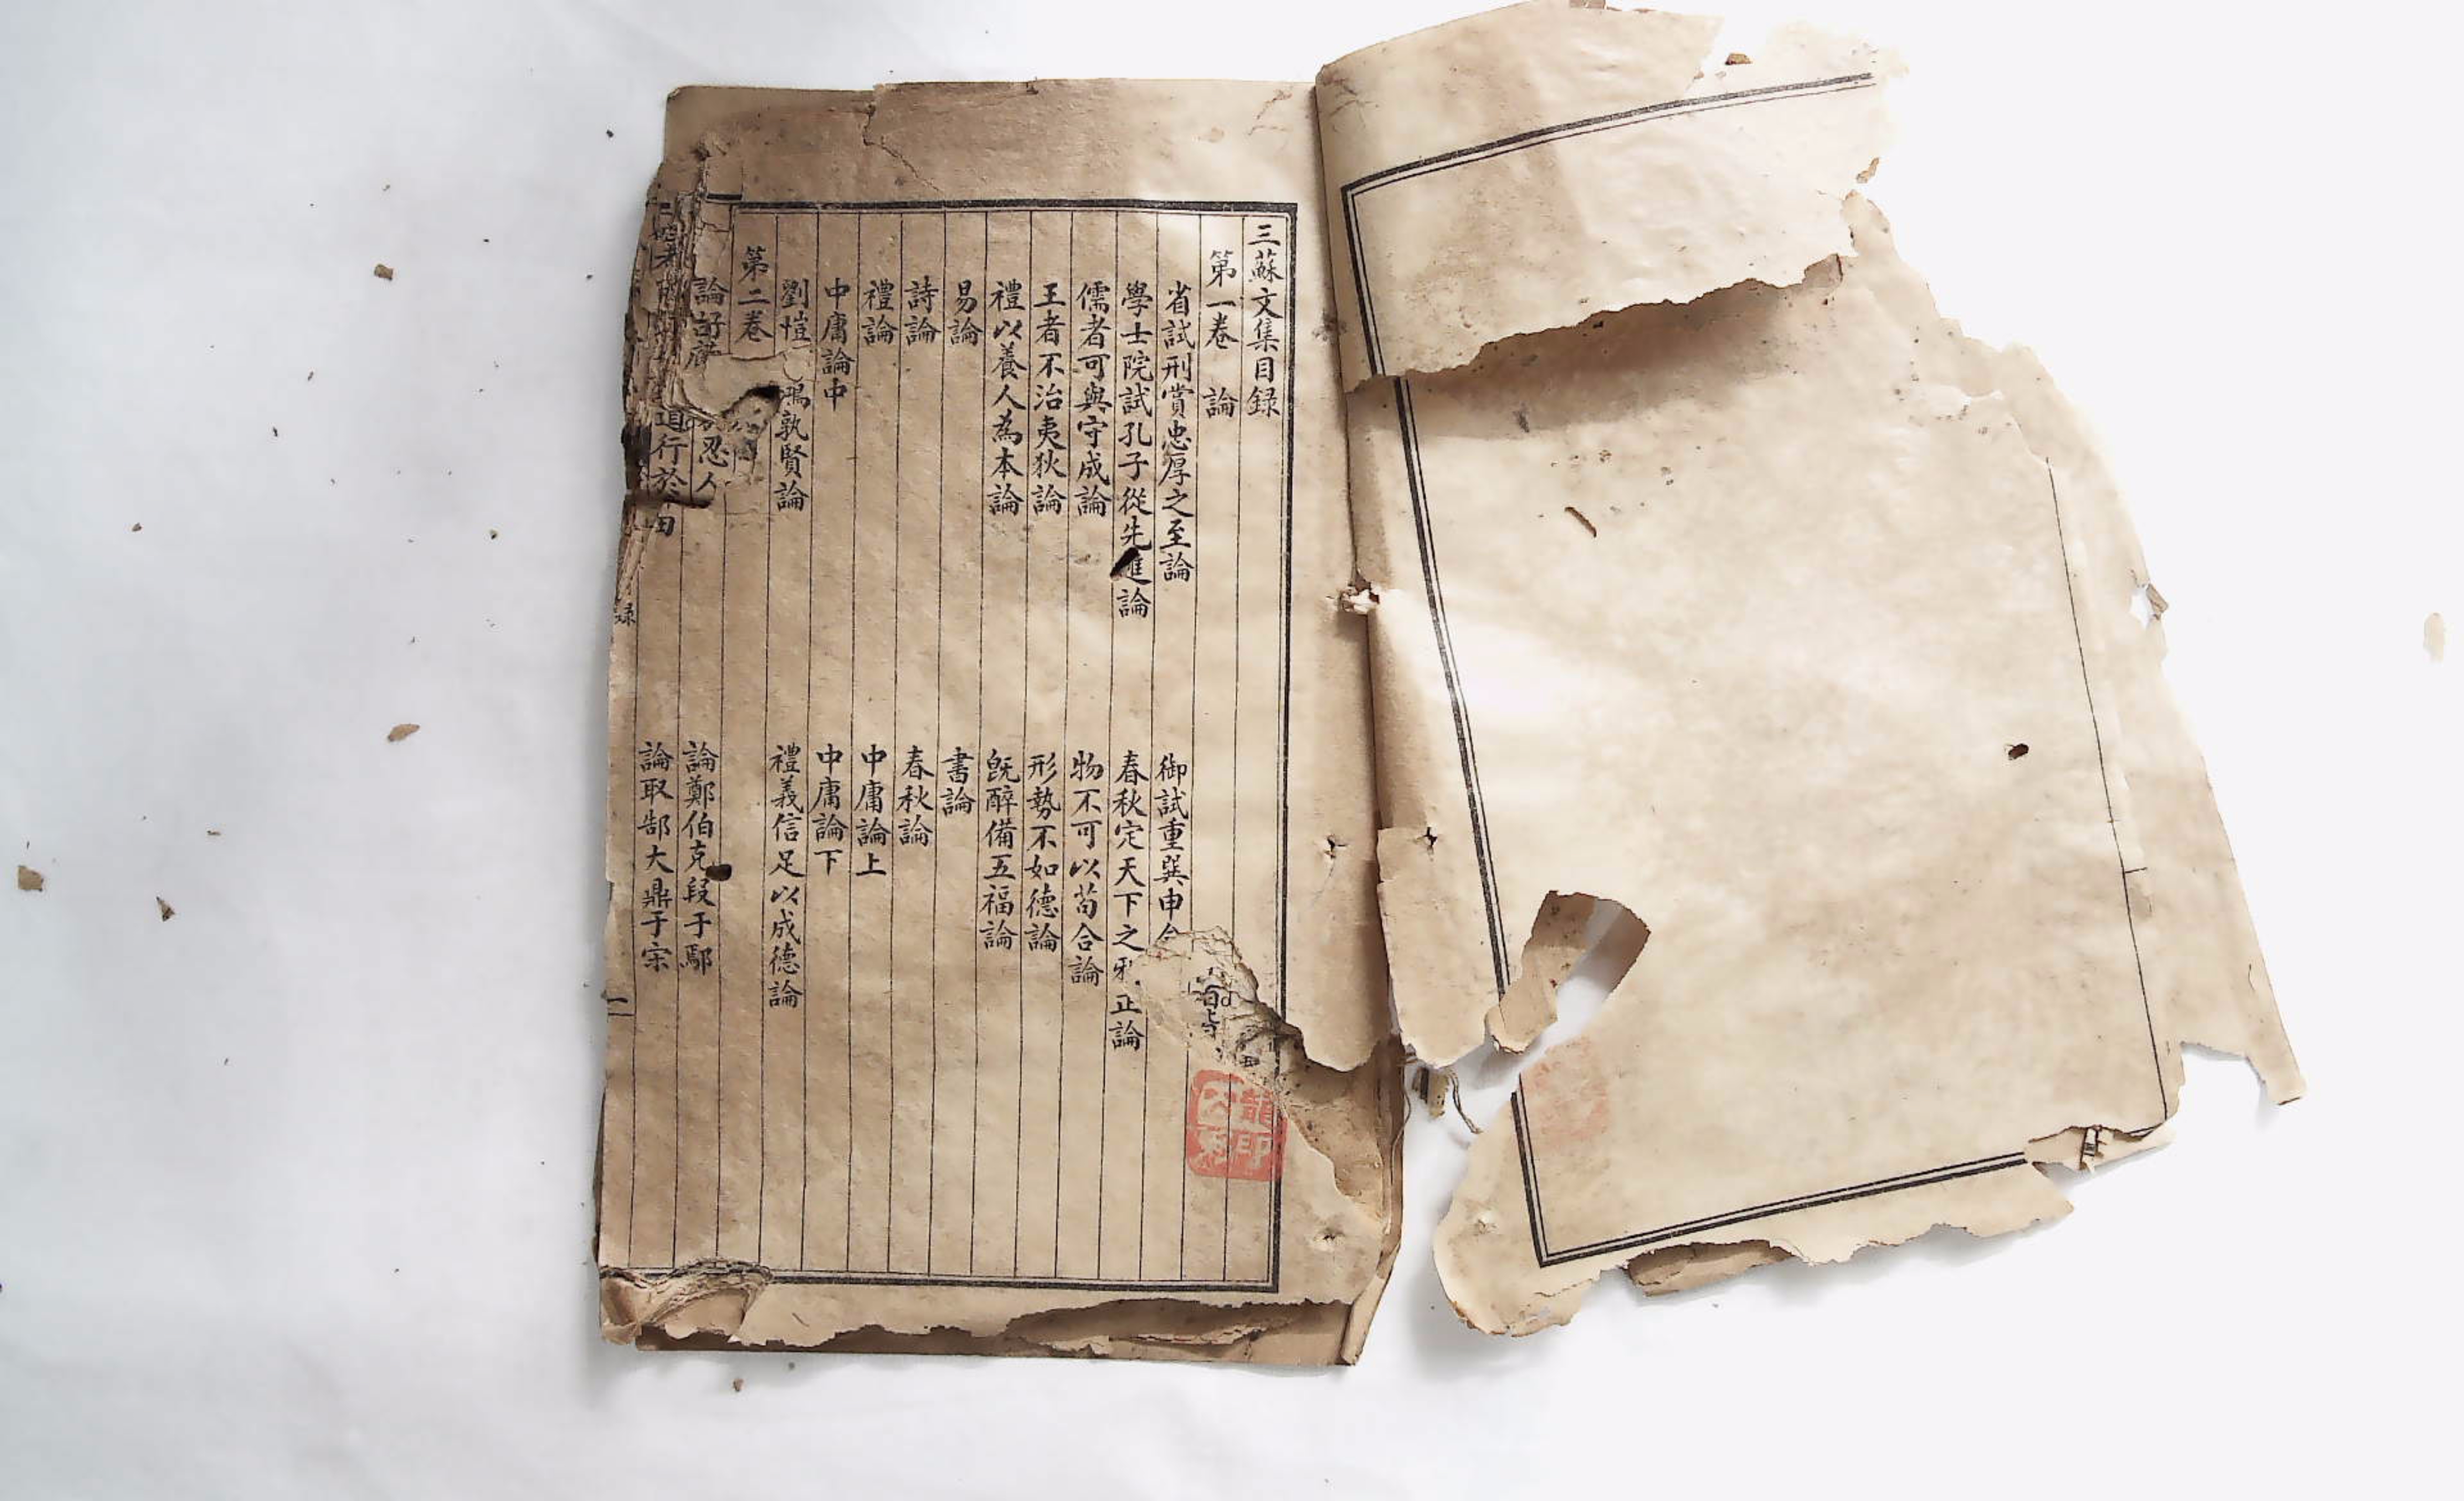 三蘇文集目録
第一卷 論
省試刑賞忠厚之至論 御試重巽申
學士院試孔子從先進論 春秋定天下之邪正論
儒者可與守成論 物不可以苟合論
王者不治夷狄論 形勢不如德論
禮以養人為本論 既醉備五福論
易論 書論
詩論 春秋論
禮論 中庸論上
中庸論中 中庸論下
劉愷 鴻孰賢論 禮義信足以成德論
第二卷
論好 忍人 論鄭伯克段于鄢
道行於 論取郜大鼎于宋
録
一
龍
印